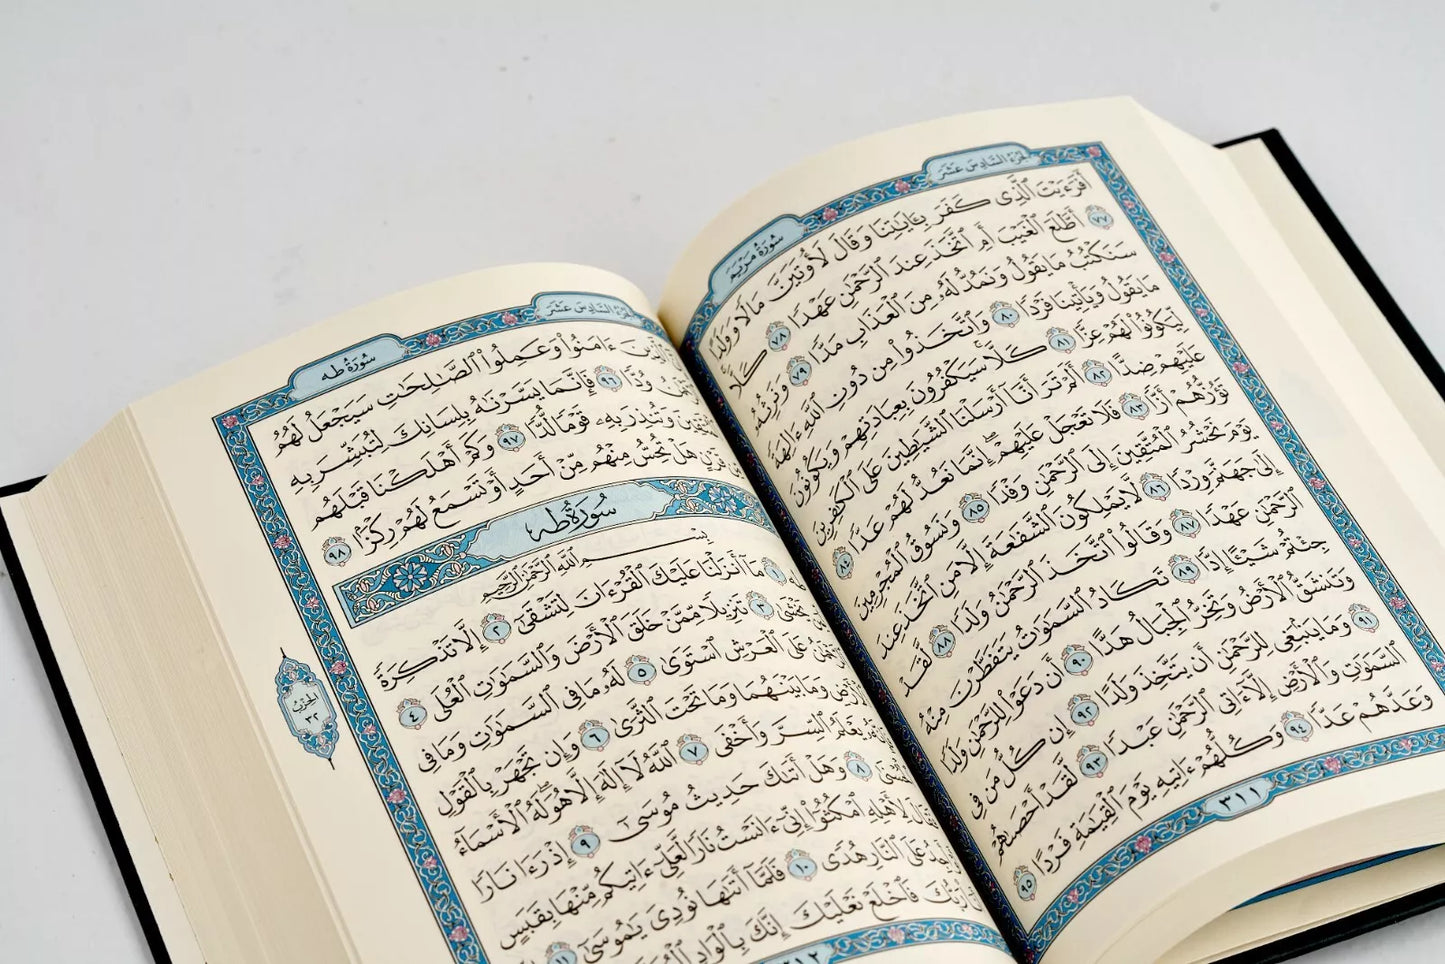 الجزء السادس عشر
سورة مريم
أَفَرَءَيْتَ ٱلَّذِى كَفَرَ بِـَٔايَٰتِنَا وَقَالَ لَأُوتَيَنَّ مَالًا وَوَلَدًا
٧٧ أَطَّلَعَ ٱلْغَيْبَ أَمِ ٱتَّخَذَ عِندَ ٱلرَّحْمَٰنِ عَهْدًا ٧٨ كَلَّا
سَنَكْتُبُ مَا يَقُولُ وَنَمُدُّ لَهُۥ مِنَ ٱلْعَذَابِ مَدًّا ٧٩ وَنَرِثُهُۥ
مَا يَقُولُ وَيَأْتِينَا فَرْدًا ٨٠ وَٱتَّخَذُوا۟ مِن دُونِ ٱللَّهِ ءَالِهَةً
لِّيَكُونُوا۟ لَهُمْ عِزًّا ٨١ كَلَّا سَيَكْفُرُونَ بِعِبَادَتِهِمْ وَيَكُونُونَ
عَلَيْهِمْ ضِدًّا ٨٢ أَلَمْ تَرَ أَنَّآ أَرْسَلْنَا ٱلشَّيَٰطِينَ عَلَى ٱلْكَٰفِرِينَ
تَؤُزُّهُمْ أَزًّا ٨٣ فَلَا تَعْجَلْ عَلَيْهِمْ إِنَّمَا نَعُدُّ لَهُمْ عَدًّا ٨٤
يَوْمَ نَحْشُرُ ٱلْمُتَّقِينَ إِلَى ٱلرَّحْمَٰنِ وَفْدًا ٨٥ وَنَسُوقُ ٱلْمُجْرِمِينَ
إِلَىٰ جَهَنَّمَ وِرْدًا ٨٦ لَّا يَمْلِكُونَ ٱلشَّفَٰعَةَ إِلَّا مَنِ ٱتَّخَذَ عِندَ
ٱلرَّحْمَٰنِ عَهْدًا ٨٧ وَقَالُوا۟ ٱتَّخَذَ ٱلرَّحْمَٰنُ وَلَدًا ٨٨ لَّقَدْ
جِئْتُمْ شَيْـًٔا إِدًّا ٨٩ تَكَادُ ٱلسَّمَٰوَٰتُ يَتَفَطَّرْنَ مِنْهُ
وَتَنشَقُّ ٱلْأَرْضُ وَتَخِرُّ ٱلْجِبَالُ هَدًّا ٩٠ أَن دَعَوْا۟ لِلرَّحْمَٰنِ وَلَدًا
٩١ وَمَا يَنۢبَغِى لِلرَّحْمَٰنِ أَن يَتَّخِذَ وَلَدًا ٩٢ إِن كُلُّ مَن فِى
ٱلسَّمَٰوَٰتِ وَٱلْأَرْضِ إِلَّآ ءَاتِى ٱلرَّحْمَٰنِ عَبْدًا ٩٣ لَّقَدْ أَحْصَىٰهُمْ
وَعَدَّهُمْ عَدًّا ٩٤ وَكُلُّهُمْ ءَاتِيهِ يَوْمَ ٱلْقِيَٰمَةِ فَرْدًا ٩٥
٣١١
الجزء السادس عشر
سورة طه
ءَامَنُوا۟ وَعَمِلُوا۟ ٱلصَّٰلِحَٰتِ سَيَجْعَلُ لَهُمُ
وُدًّا ٩٦ فَإِنَّمَا يَسَّرْنَٰهُ بِلِسَانِكَ لِتُبَشِّرَ بِهِ
وَتُنذِرَ بِهِۦ قَوْمًا لُّدًّا ٩٧ وَكَمْ أَهْلَكْنَا قَبْلَهُم
قَرْنٍ هَلْ تُحِسُّ مِنْهُم مِّنْ أَحَدٍ أَوْ تَسْمَعُ لَهُمْ رِكْزًۢا ٩٨
سورة طه
بِسْمِ ٱللَّهِ ٱلرَّحْمَٰنِ ٱلرَّحِيمِ
طه ١ مَآ أَنزَلْنَا عَلَيْكَ ٱلْقُرْءَانَ لِتَشْقَىٰٓ ٢ إِلَّا تَذْكِرَةً
يَخْشَىٰ ٣ تَنزِيلًا مِّمَّنْ خَلَقَ ٱلْأَرْضَ وَٱلسَّمَٰوَٰتِ ٱلْعُلَى ٤
عَلَى ٱلْعَرْشِ ٱسْتَوَىٰ ٥ لَهُۥ مَا فِى ٱلسَّمَٰوَٰتِ وَمَا فِى
ٱلْأَرْضِ وَمَا بَيْنَهُمَا وَمَا تَحْتَ ٱلثَّرَىٰ ٦ وَإِن تَجْهَرْ بِٱلْقَوْلِ
يَعْلَمُ ٱلسِّرَّ وَأَخْفَى ٧ ٱللَّهُ لَآ إِلَٰهَ إِلَّا هُوَ لَهُ ٱلْأَسْمَآءُ
٨ وَهَلْ أَتَىٰكَ حَدِيثُ مُوسَىٰٓ ٩ إِذْ رَءَا نَارًا
فَقَالَ لِأَهْلِهِ ٱمْكُثُوٓا۟ إِنِّىٓ ءَانَسْتُ نَارًا لَّعَلِّىٓ ءَاتِيكُم مِّنْهَا بِقَبَسٍ
أَجِدُ عَلَى ٱلنَّارِ هُدًى ١٠ فَلَمَّآ أَتَىٰهَا نُودِىَ يَٰمُوسَىٰٓ ١١
رَبُّكَ فَٱخْلَعْ نَعْلَيْكَ إِنَّكَ بِٱلْوَادِ
الحزب
٣٢
٣١٢